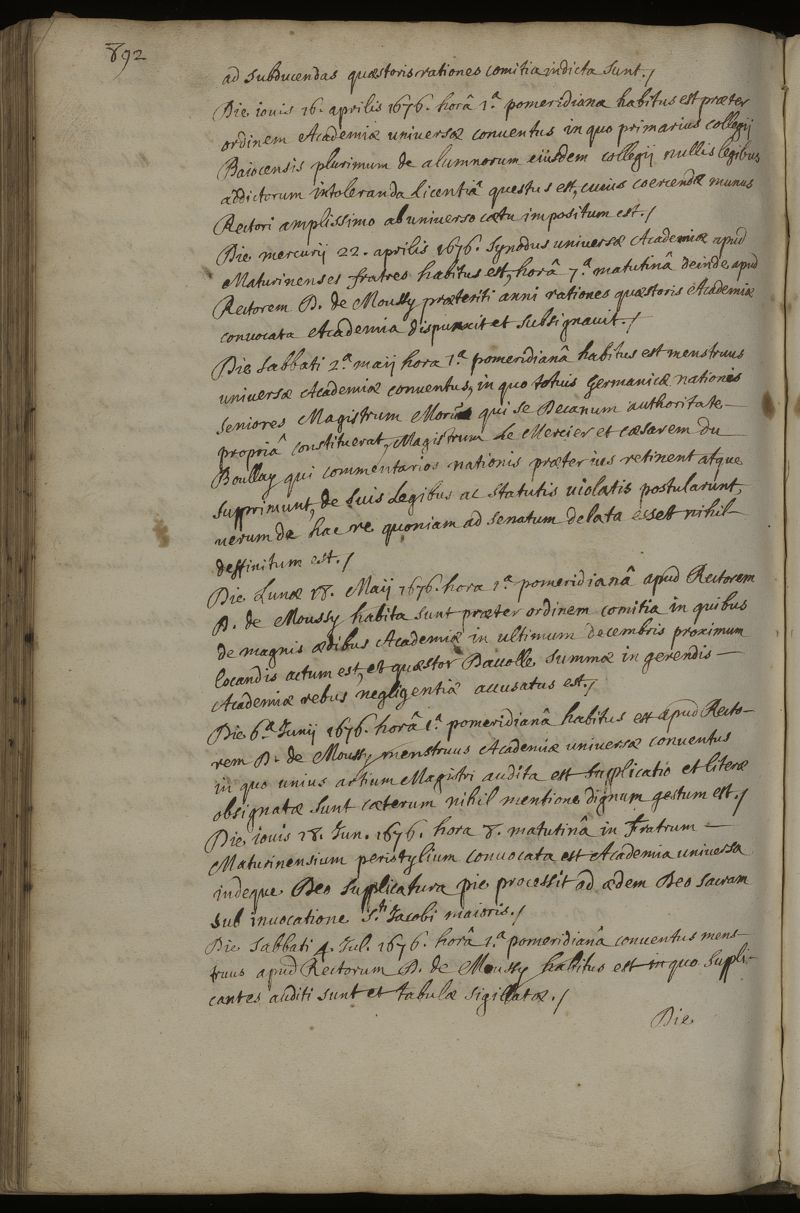 892
ad subducendas quæstoris rationes comitia indicta sunt./
Die iouis 16. aprilis 1676. horâ 1.ª pomeridiana habitus est præter
ordinem Academiæ uniuersæ conuentus in quo primarius collegij
Baiocensis plurimum de alumnorum eiusdem collegij nullis legibus
addictorum intoleranda licentiâ questus est, cuius coercendæ munus
Rectori amplissimo ab uniuerso cœtu impositum est./
Die mercurij 22. aprilis 1676. synodus uniuersæ Academiæ apud
Maturinenses fratres habitus est, horâ 7.ª matutinâ deinde apud
Rectorem D. de Moussy præteriti anni rationes quæstoris Academiæ
conuocata Academia dispunxit et subsignauit./
Die sabbati 2.ª maij hora 1.ª pomeridianâ habitus est menstruus
uniuersæ Academiæ conuentus, in quo totuis germanicæ nationis
seniores Magistrum qui se Decanum authoritate
propriâ constituerat, Magistrum Le Mercier et cæsarem du
Boullay qui commentarios nationis præter ius retinent atque
supprimunt, de suis Legibus ac statutis uiolatis postularunt,
uerum de hac re quoniam ad senatum delata esset nihil
deffinitum est./
Die Lunæ 18. Maij 1676. hora 1.ª pomeridianâ apud Rectorem
D. de Moussy habita sunt præter ordinem comitia in quibus
de magnis ædibus Academiæ in ultimum decembris proximum
locandis actum est, et quæstor Dauolle summæ in gerendis
Academiæ rebus negligentiæ accusatus est./
Die 6.ª Junij 1676. horâ 1.ª pomeridianâ habitus est apud Recto-
rem D. de Moussy menstruus Academiæ uniuersæ conuentus
in quo unius artium Magistri audita est supplicatio et literæ
obsignatæ sunt cæterum nihil mentione dignum gestum est./
Die iouis 18. Jun. 1676. hora 8. matutinâ in Fratrum
Maturinensium peristylium conuocata est Academia uniuersa
indeque Deo supplicatura pie processit ad ædem Deo sacram
sub inuocatione S.ti Jacobi maioris./
Die sabbati 4. Jul. 1676. horâ 1.ª pomeridianâ conuentus mens-
truus apud Rectorum D. de Moussy habitus est in quo suppli-
cantes auditi sunt et tabulæ sigillatæ./
Die